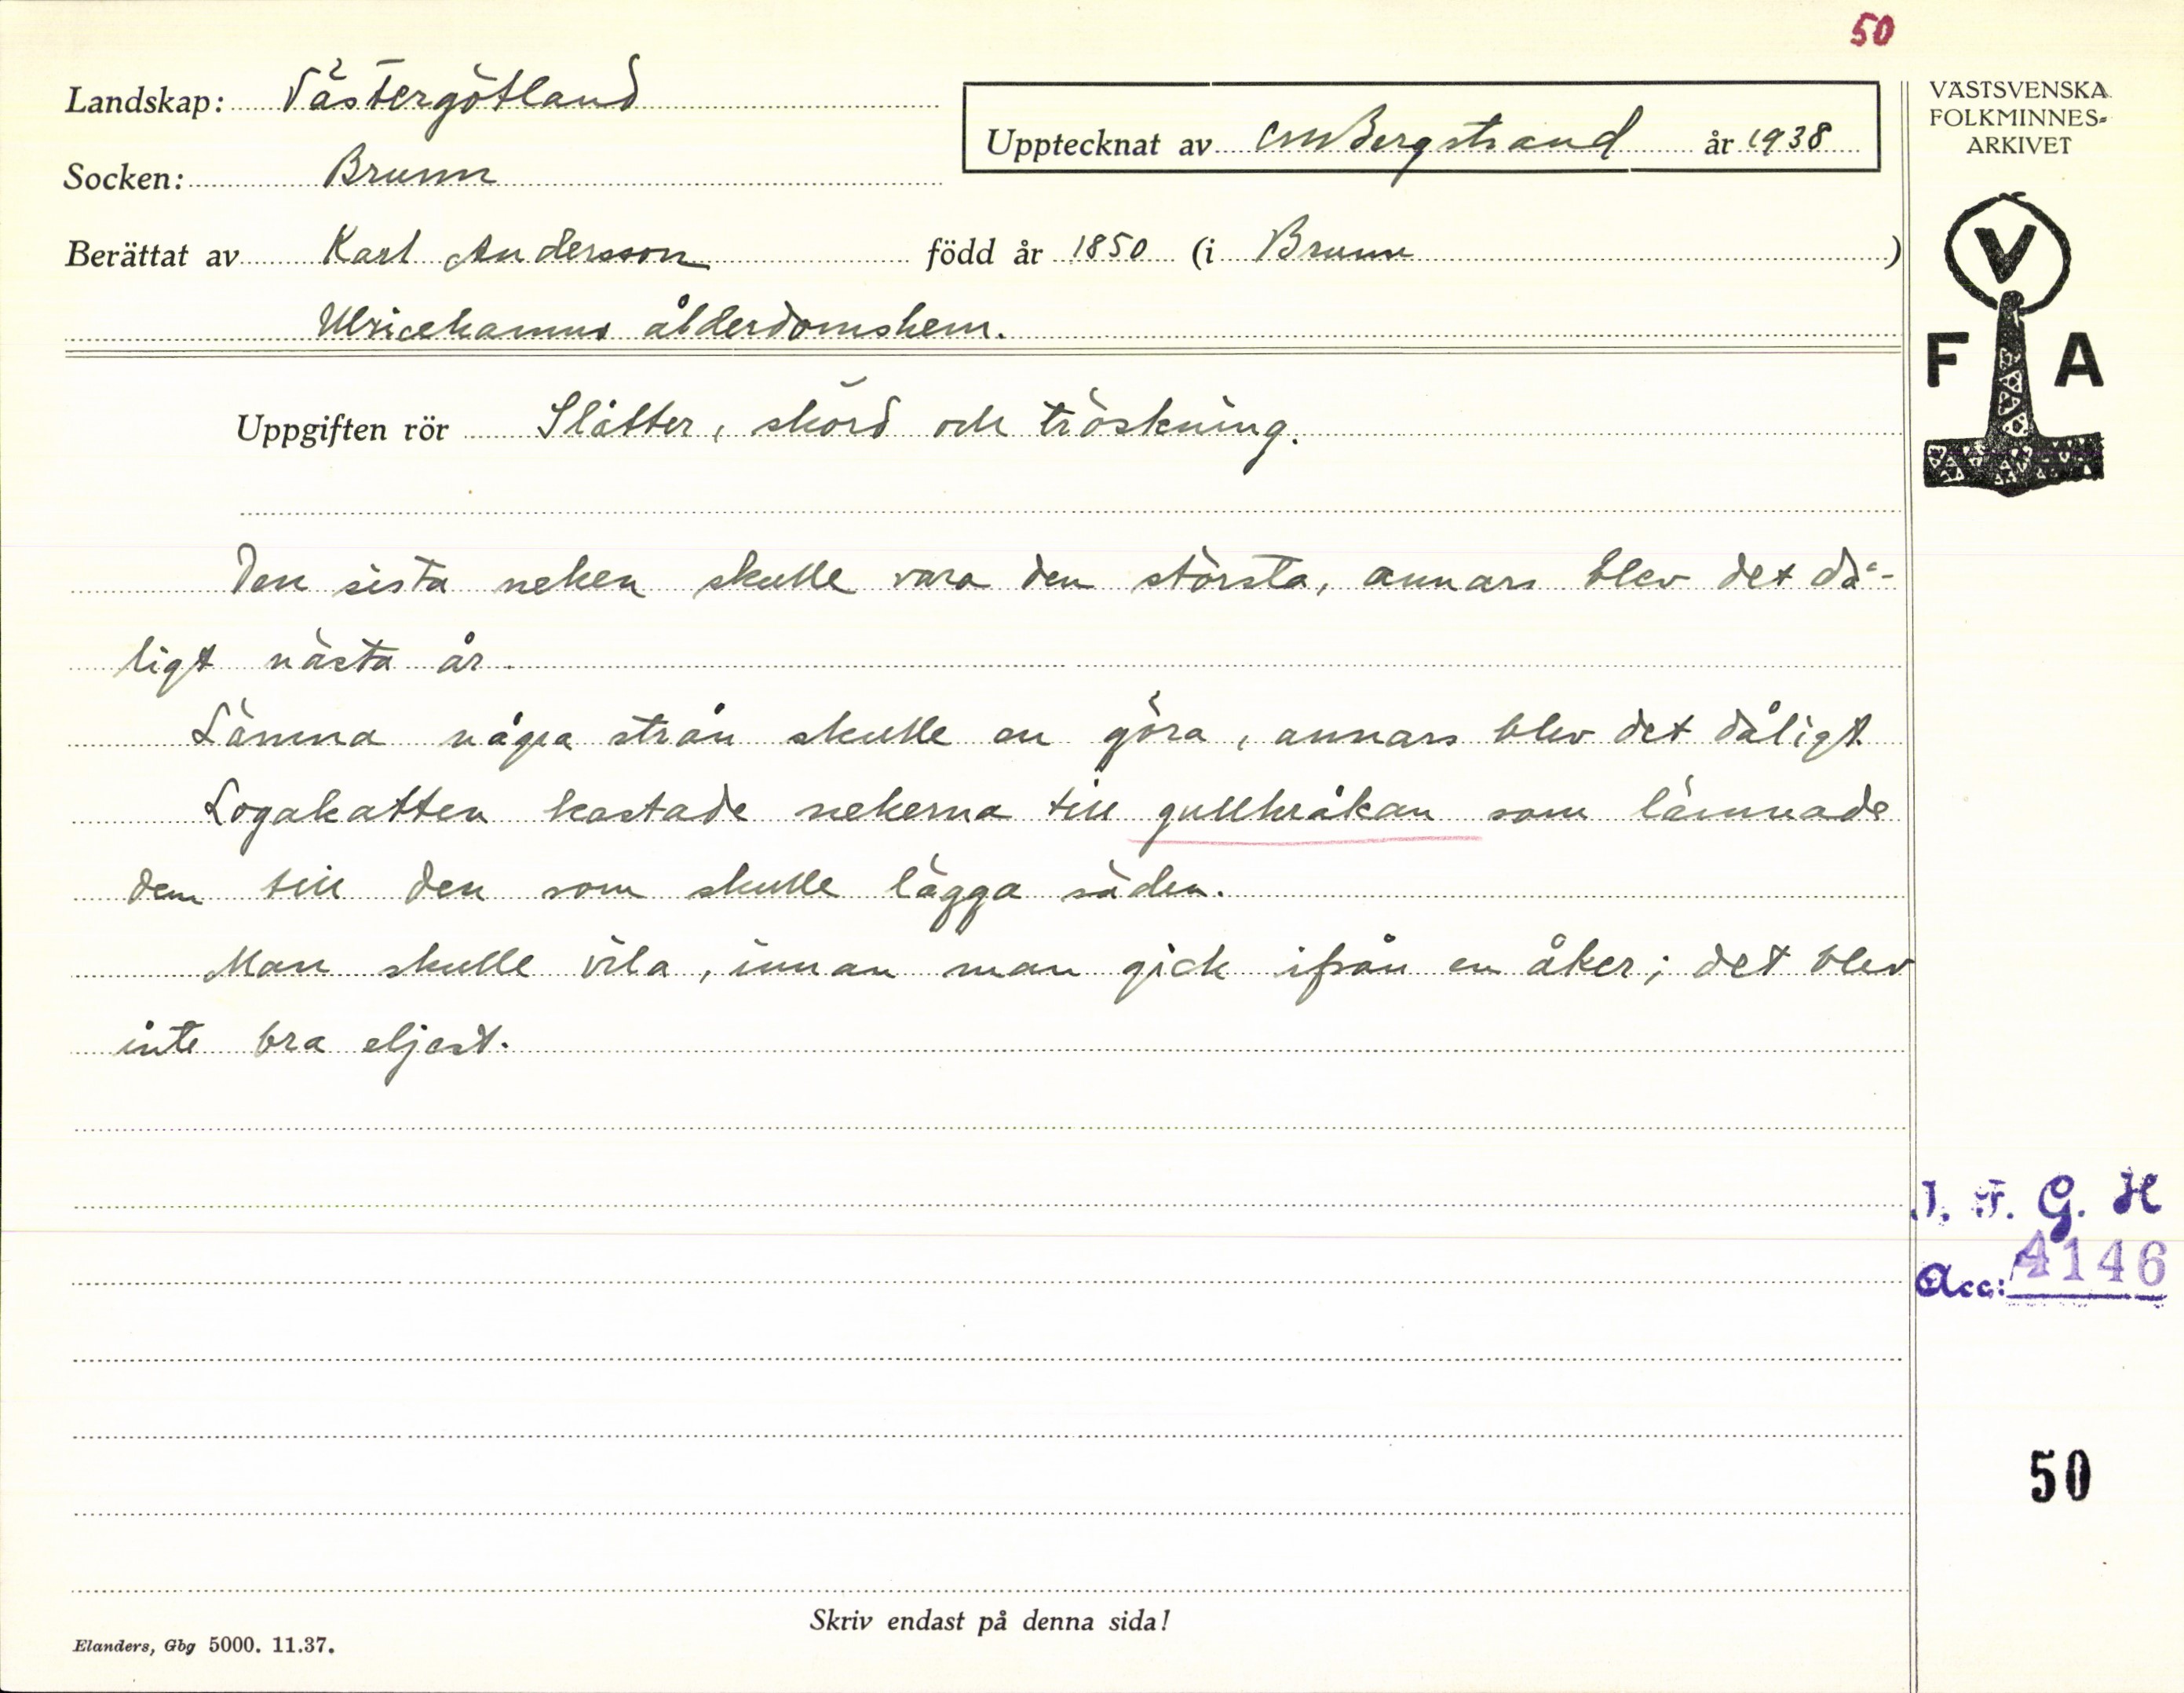 50
Landskap: Västergötland
Upptecknat av CMBergstrand år 1938
VÄSTSVENSKA
FOLKMINNES-
ARKIVET
Socken: Brunn
Berättat av Karl Andersson född år 1850 (i Brunn )
Ulricehamns ålderdomshem.
V
F A
Uppgiften rör Slåtter, skörd och tröskning.
Den sista neken skulle vara den största, annars blev det då-
ligt nästa år.
Lämna några strån skulle en göra, annars blev det dåligt.
Logakatten kastade nekerna till gullkråkan som lämnade
dem till den som skulle lägga säden.
Man skulle vila, innan man gick ifrån en åker; det blev
inte bra eljest.
I. F. G. H
Acc: 4146
50
Skriv endast på denna sida!
Elanders, Gbg 5000. 11.37.